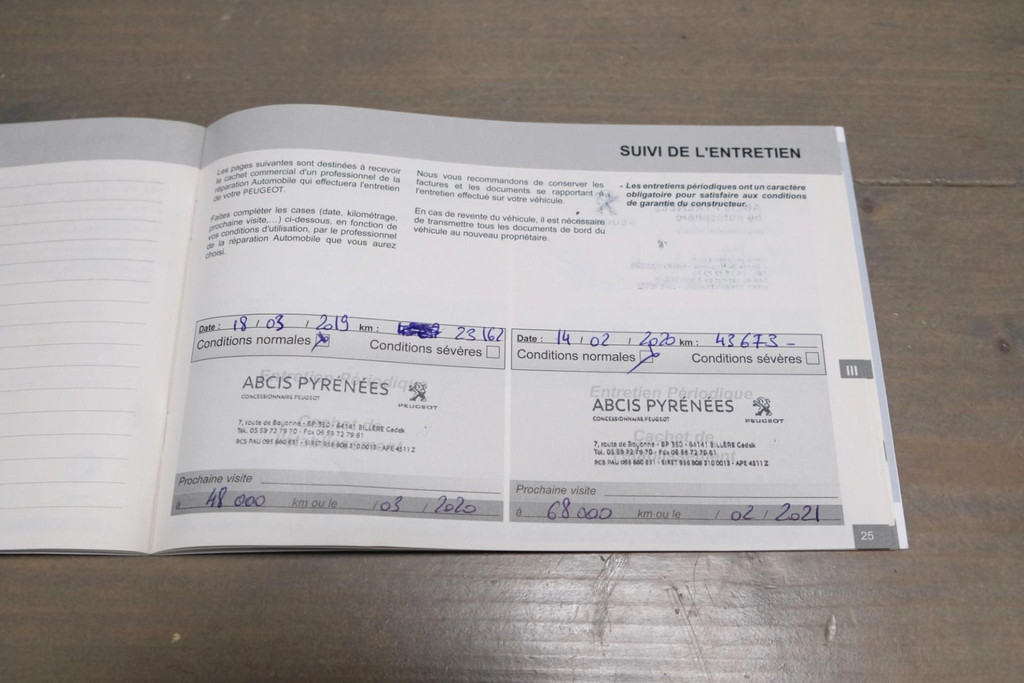 SUIVI DE L'ENTRETIEN
Les pages suivantes sont destinées à recevoir
le cachet commercial d'un professionnel de la
réparation Automobile qui effectuera l'entretien
de votre PEUGEOT.
Faites compléter les cases (date, kilométrage,
prochaine visite,...) ci-dessous, en fonction de
vos conditions d'utilisation, par le professionnel
de la réparation Automobile que vous aurez
choisi.
Nous vous recommandons de conserver les
factures et les documents se rapportant à
l'entretien effectué sur votre véhicule.
En cas de revente du véhicule, il est nécessaire
de transmettre tous les documents de bord du
véhicule au nouveau propriétaire.
- Les entretiens périodiques ont un caractère
obligatoire pour satisfaire aux conditions
de garantie du constructeur.
Date : 18 / 03 / 2019 km : 23 162
Conditions normales Conditions sévères
Entretien Périodique
ABCIS PYRÉNÉES
CONCESSIONNAIRE PEUGEOT
PEUGEOT
Cachet de
7, route de Bayonne - BP 350 - 64141 BILLÈRE Cedex
Tél. 05 59 72 79 70 - Fax 05 59 72 79 61
Prochaine visite
à 48 000 km ou le / 03 / 2020
Date : 14 / 02 / 2020 km : 43 673 -
Conditions normales Conditions sévères
Entretien Périodique
ABCIS PYRÉNÉES
CONCESSIONNAIRE PEUGEOT
PEUGEOT
Cachet de
7, route de Bayonne - BP 350 - 64141 BILLÈRE Cedex
Tél. 05 59 72 79 70 - Fax 05 59 72 79 61
Prochaine visite
à 68 000 km ou le / 02 / 2021
III
25